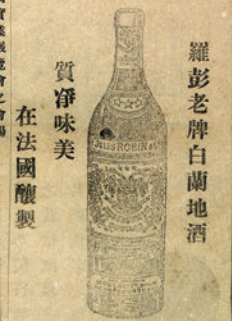 羅彭老牌白蘭地酒
JULES ROBIN & Co
質凈味美
在法國釀製
覽會之會場